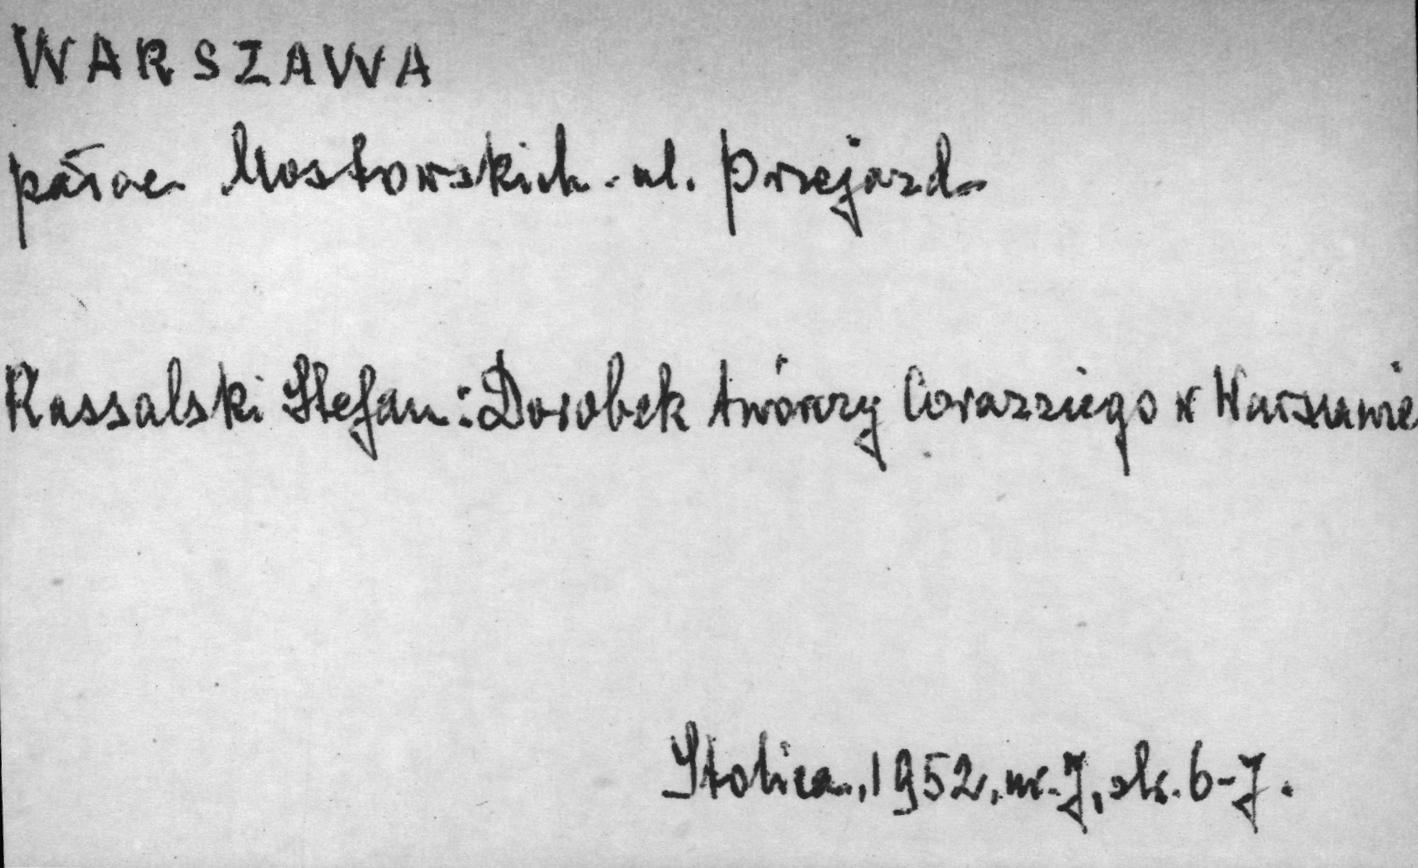 WARSZAWA
pałac Mostowskich - ul. Przejazd
Rassalski Stefan: Dorobek twórczy Corazziego w Warszawie
Stolica, 1952, nr. 7, str. 6-7.